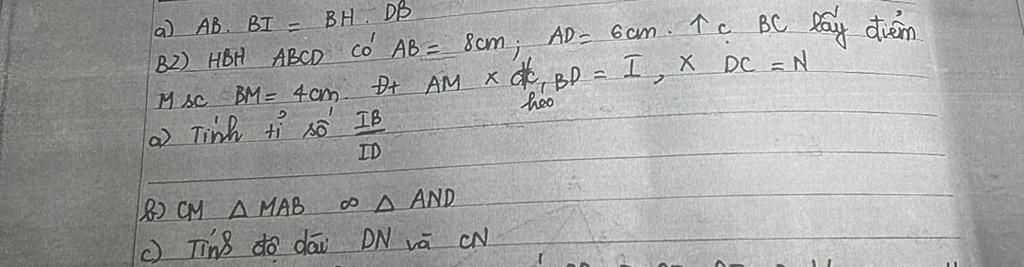 a) AB. BI = BH. DB
B2) HBH ABCD có AB = 8cm; AD = 6cm. ↑ C BC lấy điểm
M sc BM = 4cm. Đt AM x đc, BD = I, x DC = N
héo
a) Tính tỉ số IB/ID
b) CM Δ MAB ∞ Δ AND
c) Tính độ dài DN và CN